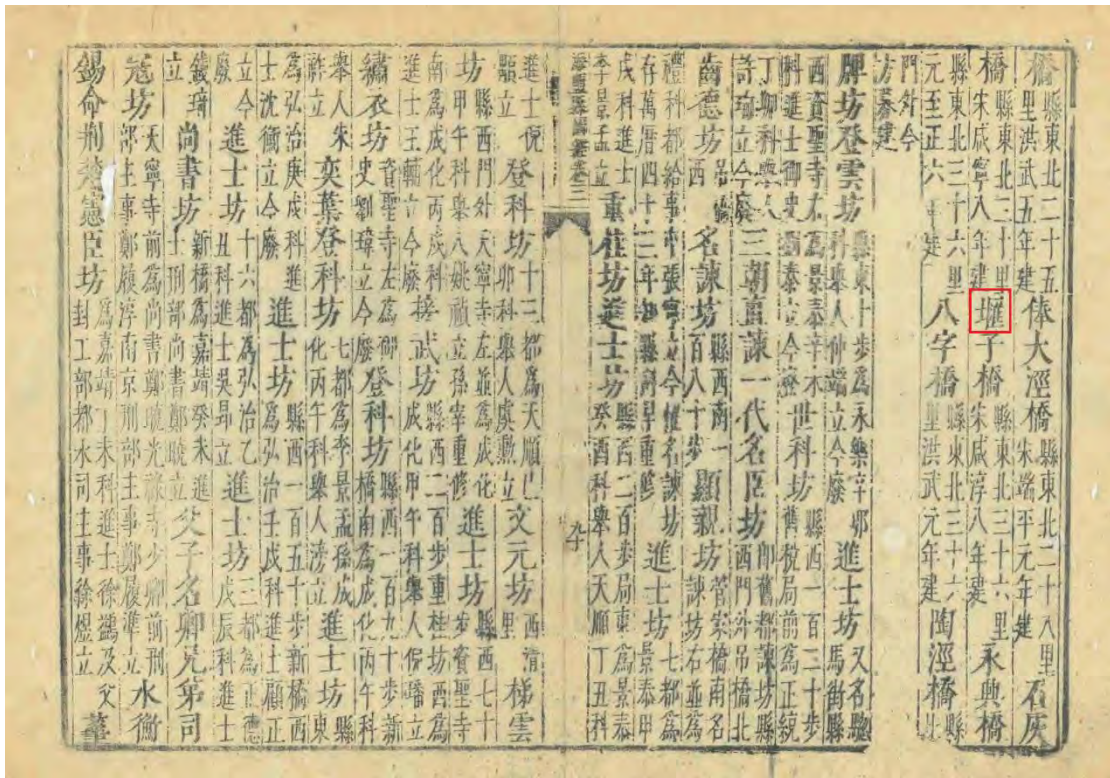 橋縣東北二十五里洪武五年建俸大涇橋縣東北二十八里宋端平元年建石灰
橋縣東北二十里宋咸寧八年建壢子橋縣東北三十六里宋咸淳八年建永興橋
縣東北三十六里元至正六年建八字橋縣東北三十六里洪武元年建陶涇橋縣北
門外今方募建
牌坊登雲坊縣東十步為永樂辛卯科舉人仲端立今廢進士坊又名驄馬街縣
西資聖寺右為景泰辛未科進士御史劉泰立今廢世科坊縣西一百二十步舊稅局前為正統
丁卯科舉人許瑜立今廢三朝直諫一代名臣坊卽舊都諫坊縣西門外吊橋北
齒德坊吊橋西名諫坊縣西南一百八十步顯親坊菅崇橋南名諫坊右並為
禮科都給事中張寧立今惟名諫坊存萬曆四十二年知縣重修進士坊七都為景泰甲
戌科進士李景孟立重桂坊進士坊縣西二百步局東為景泰癸酉科舉人天順丁丑科
海鹽縣圖經卷三
九十
進士倪立登科坊十三都為天順己卯科舉人虞勲立文元坊西清里梯雲
坊縣西門外天寧寺左並為成化甲午科舉人姚立孫宰重修進士坊縣西七十步資聖寺
南為成化丙戌科進士王輔立今廢接武坊縣西二百步重桂坊西為成化甲午科舉人倪璠立
繡衣坊資聖寺左為御史劉瑋立今廢登科坊縣西一百九十步新橋南為成化丙午科
舉人朱祚立奕葉登科坊七都為李景孟孫成化丙午科舉人濤立進士坊縣東
為弘治庚戌科進士沈衡立今廢進士坊縣西一百五十步新橋西為弘治壬戌科進士顧正
立今廢進士坊十六都為弘治乙丑科進士吳昂立進士坊三都為正德戊辰科進士
錢琦立尚書坊新橋為嘉靖癸未進士刑部尚書鄭曉立父子名卿兄弟司
冦坊天寧寺前為尚書鄭曉光祿寺少卿前刑部主事鄭履淳南京刑部主事鄭履準立水衡
錫命荆楚憲臣坊為嘉靖丁未科進士徐及父封工部都水司主事徐煜立父臺